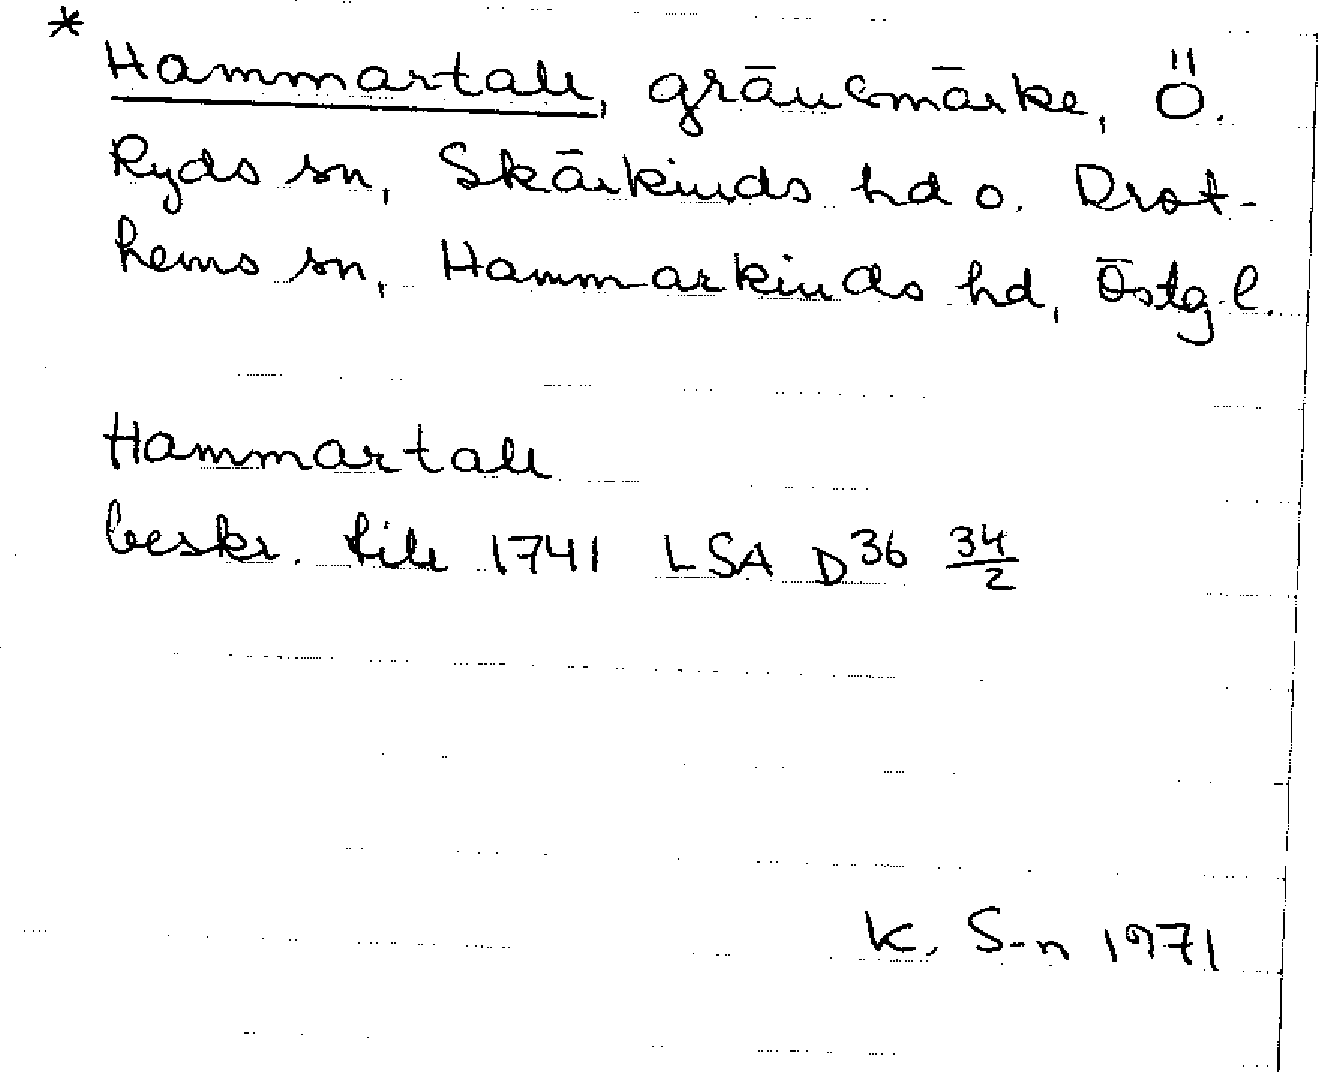 * Hammartall, gränsmärke, Ö.
Ryds sn, Skärkinds hd o. Drot-
hems sn, Hammarkinds hd, Östg. l.
Hammartall
beskr. till 1741 LSA D36 34/2
K. S-n 1971